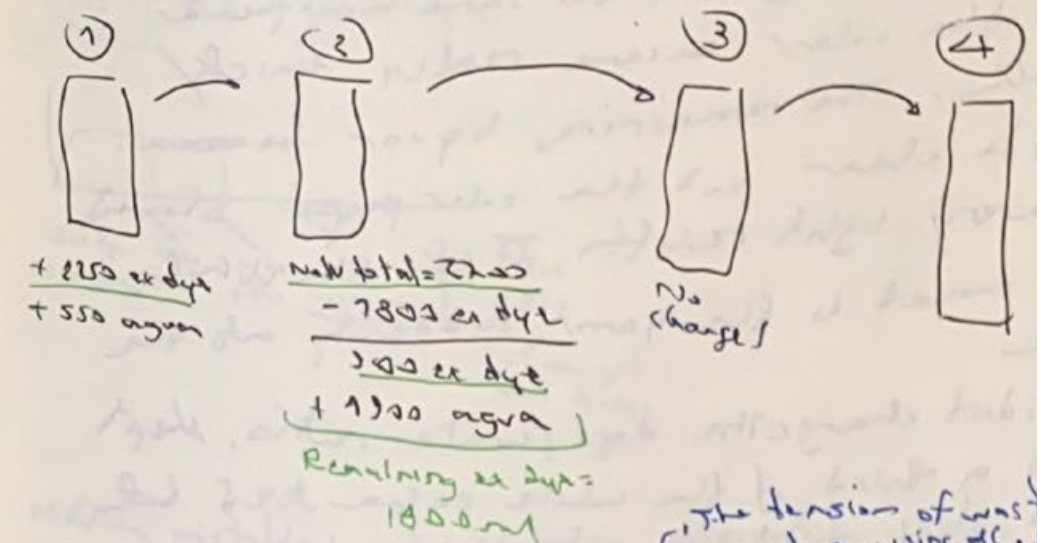 1
2
3
4
+ 2250 ex dye
+ 550 agua
New total = 2700
- 1800 ex dye
900 ex dye
+ 1900 agua
Remaining ex dye =
1800 ml
No
changes
The tension of